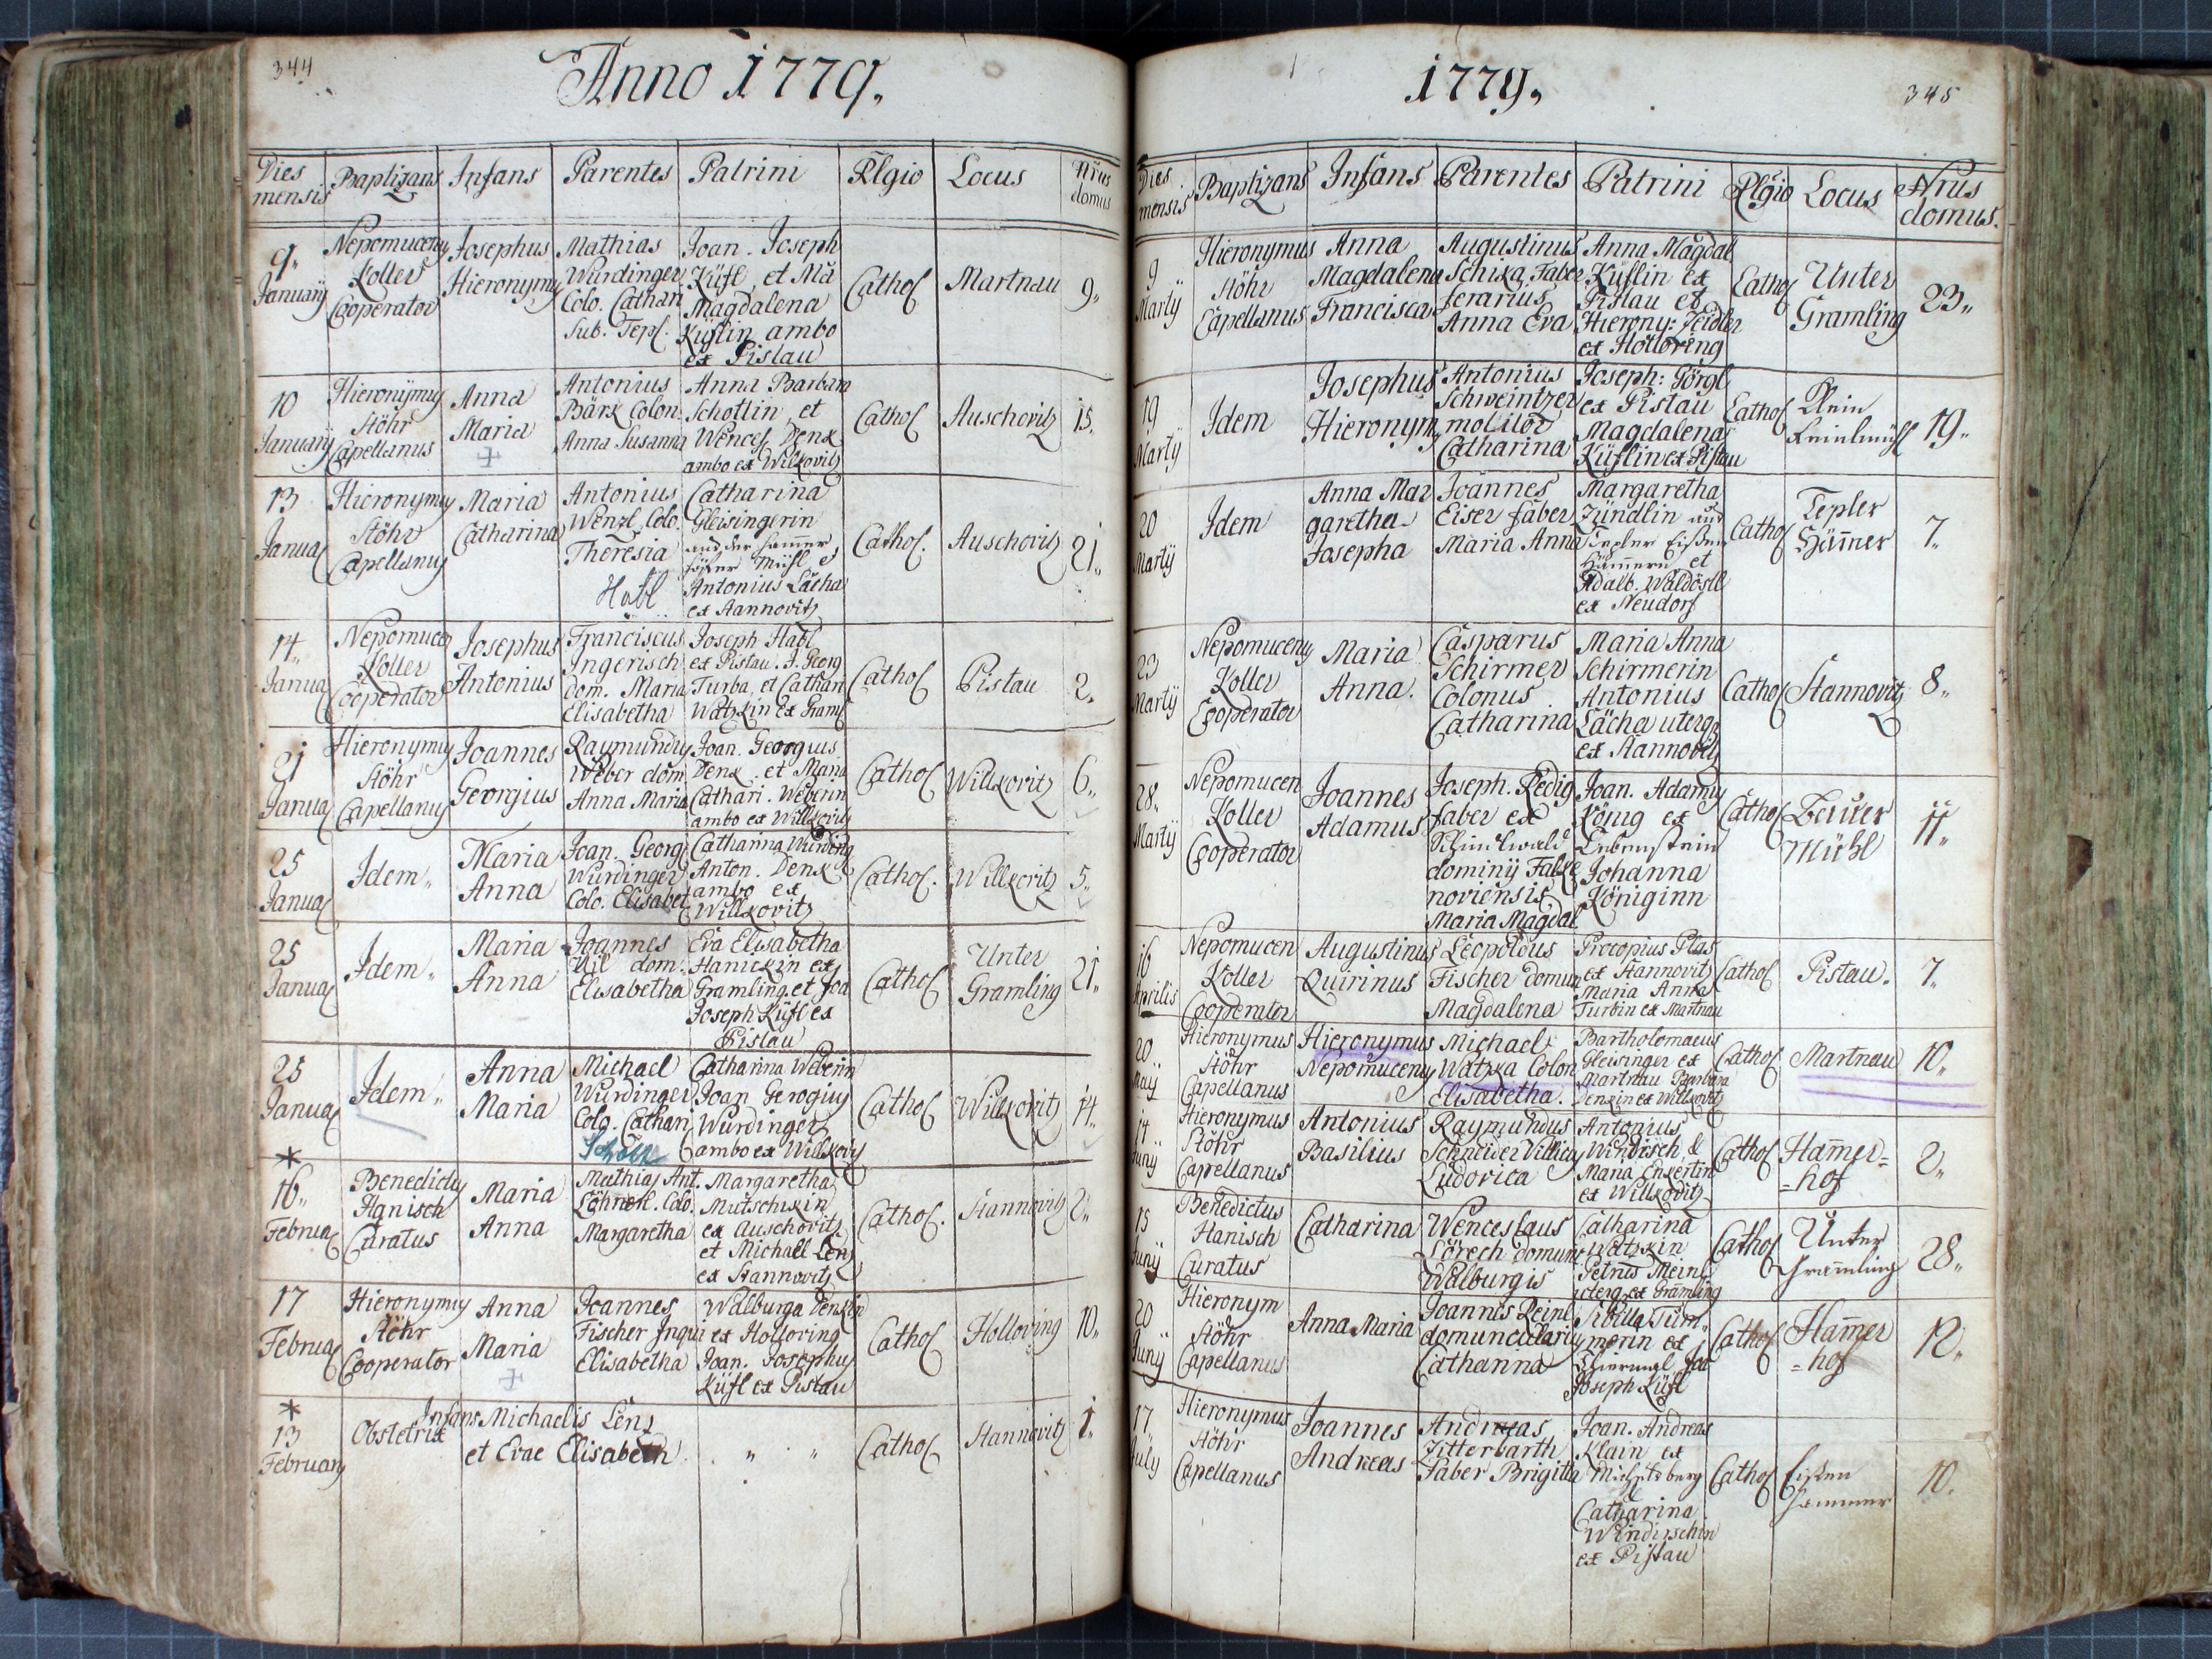 344
Anno 1779.
Dies mensis Baptizans Infans Parentes Patrini Rlgio Locus Nrus domus
9. Januarij
Nepomuceny Koller Cooperator
Josephus Hieronymy
Mathias Wurdinger Colo. Cathar. Sub. Tepl.
Joan. Joseph Küfl, et Ma Magdalena Küflin ambo ex Pistau
Cathol
Martnau
9.
10 Januarij
Hieronymy Stöhr Capellanus
Anna Maria
Antonius Bärx Colon. Anna Susanna
Anna Barbara Schottin, et Wences. Denx ambo ex Wilkovitz
Cathol
Auschovitz
15.
13 Janua
Hieronymy Stöhr Capellany
Maria Catharina
Antonius Wenzl Colo. Theresia
Habl
Catharina Gleisingerin aus der Mühl et Antonius Lächa ex Stannovitz
Cathol.
Auschovitz
21.
14. Janua
Nepomucen Koller Cooperator
Josephus Antonius
Franciscus Ingerisch dom. Maria Elisabetha
Joseph Habl ex Pistau. J. Georg Turba, et Cathari Watzkin ex Graml
Cathol
Pistau
2.
21 Janua
Hieronymy Stöhr Capellany
Joannes Georgius
Raymundy Weber dom. Anna Maria
Joan. Georgius Denx. et Maria Cathari. Weberin ambo ex Willkovitz
Cathol
Willkovitz
6.
25 Janua
Idem.
Maria Anna
Joan. Georg Wurdinger Colo. Elisabet
Catharina Wurding Anton. Denx ambo ex Willkovitz
Cathol.
Willkovitz
5.
25 Janua
Idem.
Maria Anna
Joannes Uil dom. Elisabetha
Eva Elisabetha Hanickin ex Gramling et Joa Joseph Küfl ex Pistau
Cathol
Unter Gramling
21.
25 Janua
Idem.
Anna Maria
Michael Wurdinger Colo. Cathari
Catharina Weberin Joan Gerogiuy Wurdinger ambo ex Willkovy
Cathol
Willkovitz
14.
*
16. Februa
Benedicty Hanisch Curatus
Maria Anna
Mathias Ant. Löhnerl. Colo. Margaretha
Margaretha Mutschkin ex Auschovitz et Michael Lenz ex Stannovitz
Cathol.
Stannovitz
2.
17 Februa
Hieronymy Stöhr Cooperator
Anna Maria
Joannes Fischer Inqui Elisabetha
Walburga Denxin ex Holloring Joan. Josephus Küfl ex Pistau
Cathol
Holloring
10.
*
13 February
Obstetrix
Infans Michaelis Lenz et Evae Elisabeth
" "
Cathol
Stannovitz
1.
1779.
345
Dies mensis Baptizans Infans Parentes Patrini Rlgio Locus Nrus domus.
9 Martij
Hieronymus Stöhr Capellanus
Anna Magdalena Francisca
Augustinus Schixa Faber ferarius Anna Eva
Anna Magdal Küflin ex Pistau et Hierony: Zeidler ex Holloring
Cathol
Unter Gramling
23.
19 Martij
Idem
Josephus Hieronymy
Antonius Schweintzer molitor Catharina
Joseph: Görgl ex Pistau Magdalena Küflin ex Pistau
Cathol
Klein
19.
20 Martij
Idem
Anna Margaretha Josepha
Joannes Eiser faber Maria Anna
Margaretha Zündlin aus Tepler Eißen Hämmern et Adalb. Waldöstl ex Neudorf
Cathol
Tepler Hämmer
7.
23 Martij
Nepomuceny Koller Cooperator
Maria Anna.
Casparus Schirmer Colonus Catharina
Maria Anna Schirmerin Antonius Lächa uterq ex Stannovitz
Cathol
Stannovitz
8.
28. Martij
Nepomucen Koller Cooperator
Joannes Adamus
Joseph. Redig faber ex dominij Falkenoviensis Maria Magdal
Joan. Adamy König ex Lebenstein Johanna Königinn
Cathol
Beuer Mühl
11.
16 Aprilis
Nepomucen Koller Cooperator
Augustinus Quirinus
Leopoldus Fischer domun Magdalena
Procopius Plas ex Stannovitz Maria Anna Turbin ex Martnau
Cathol
Pistau.
7.
20 Maij
Hieronymus Stöhr Capellanus
Hieronymus Nepomuceny
Michael Watzka Colon Elisabetha.
Bartholomaeus Gleisinger ex Martnau Barbara Denxin ex Willkovitz
Cathol
Martnau
10.
14 Junij
Hieronymus Stöhr Capellanus
Antonius Basilius
Raymundus Schneider Villicuy Ludovica
Antonius Windisch, & Maria Enxertin ex Willkovitz
Cathol
Hammer=
=hof
2.
15 Junij
Benedictus Hanisch Curatus
Catharina
Wenceslaus Lörech domun Walburgis
Catharina Watzkin Petrus Meinl uterq ex Gramling
Cathol
Unter Gramling
28.
20 Junij
Hieronym Stöhr Capellanus
Anna Maria
Joannes Reinl domuncularius Catharina
Sibilla Tümmerin ex Joa Joseph Küfl
Cathol
Hammer
=hof
12.
17. July
Hieronymus Stöhr Capellanus
Joannes Andreas
Andreas Zitterbarth Faber Brigitta
Joan. Andreas Klain ex Michelsberg & Catharina Windischin ex Pistau
Cathol
Eißen hammer
10.